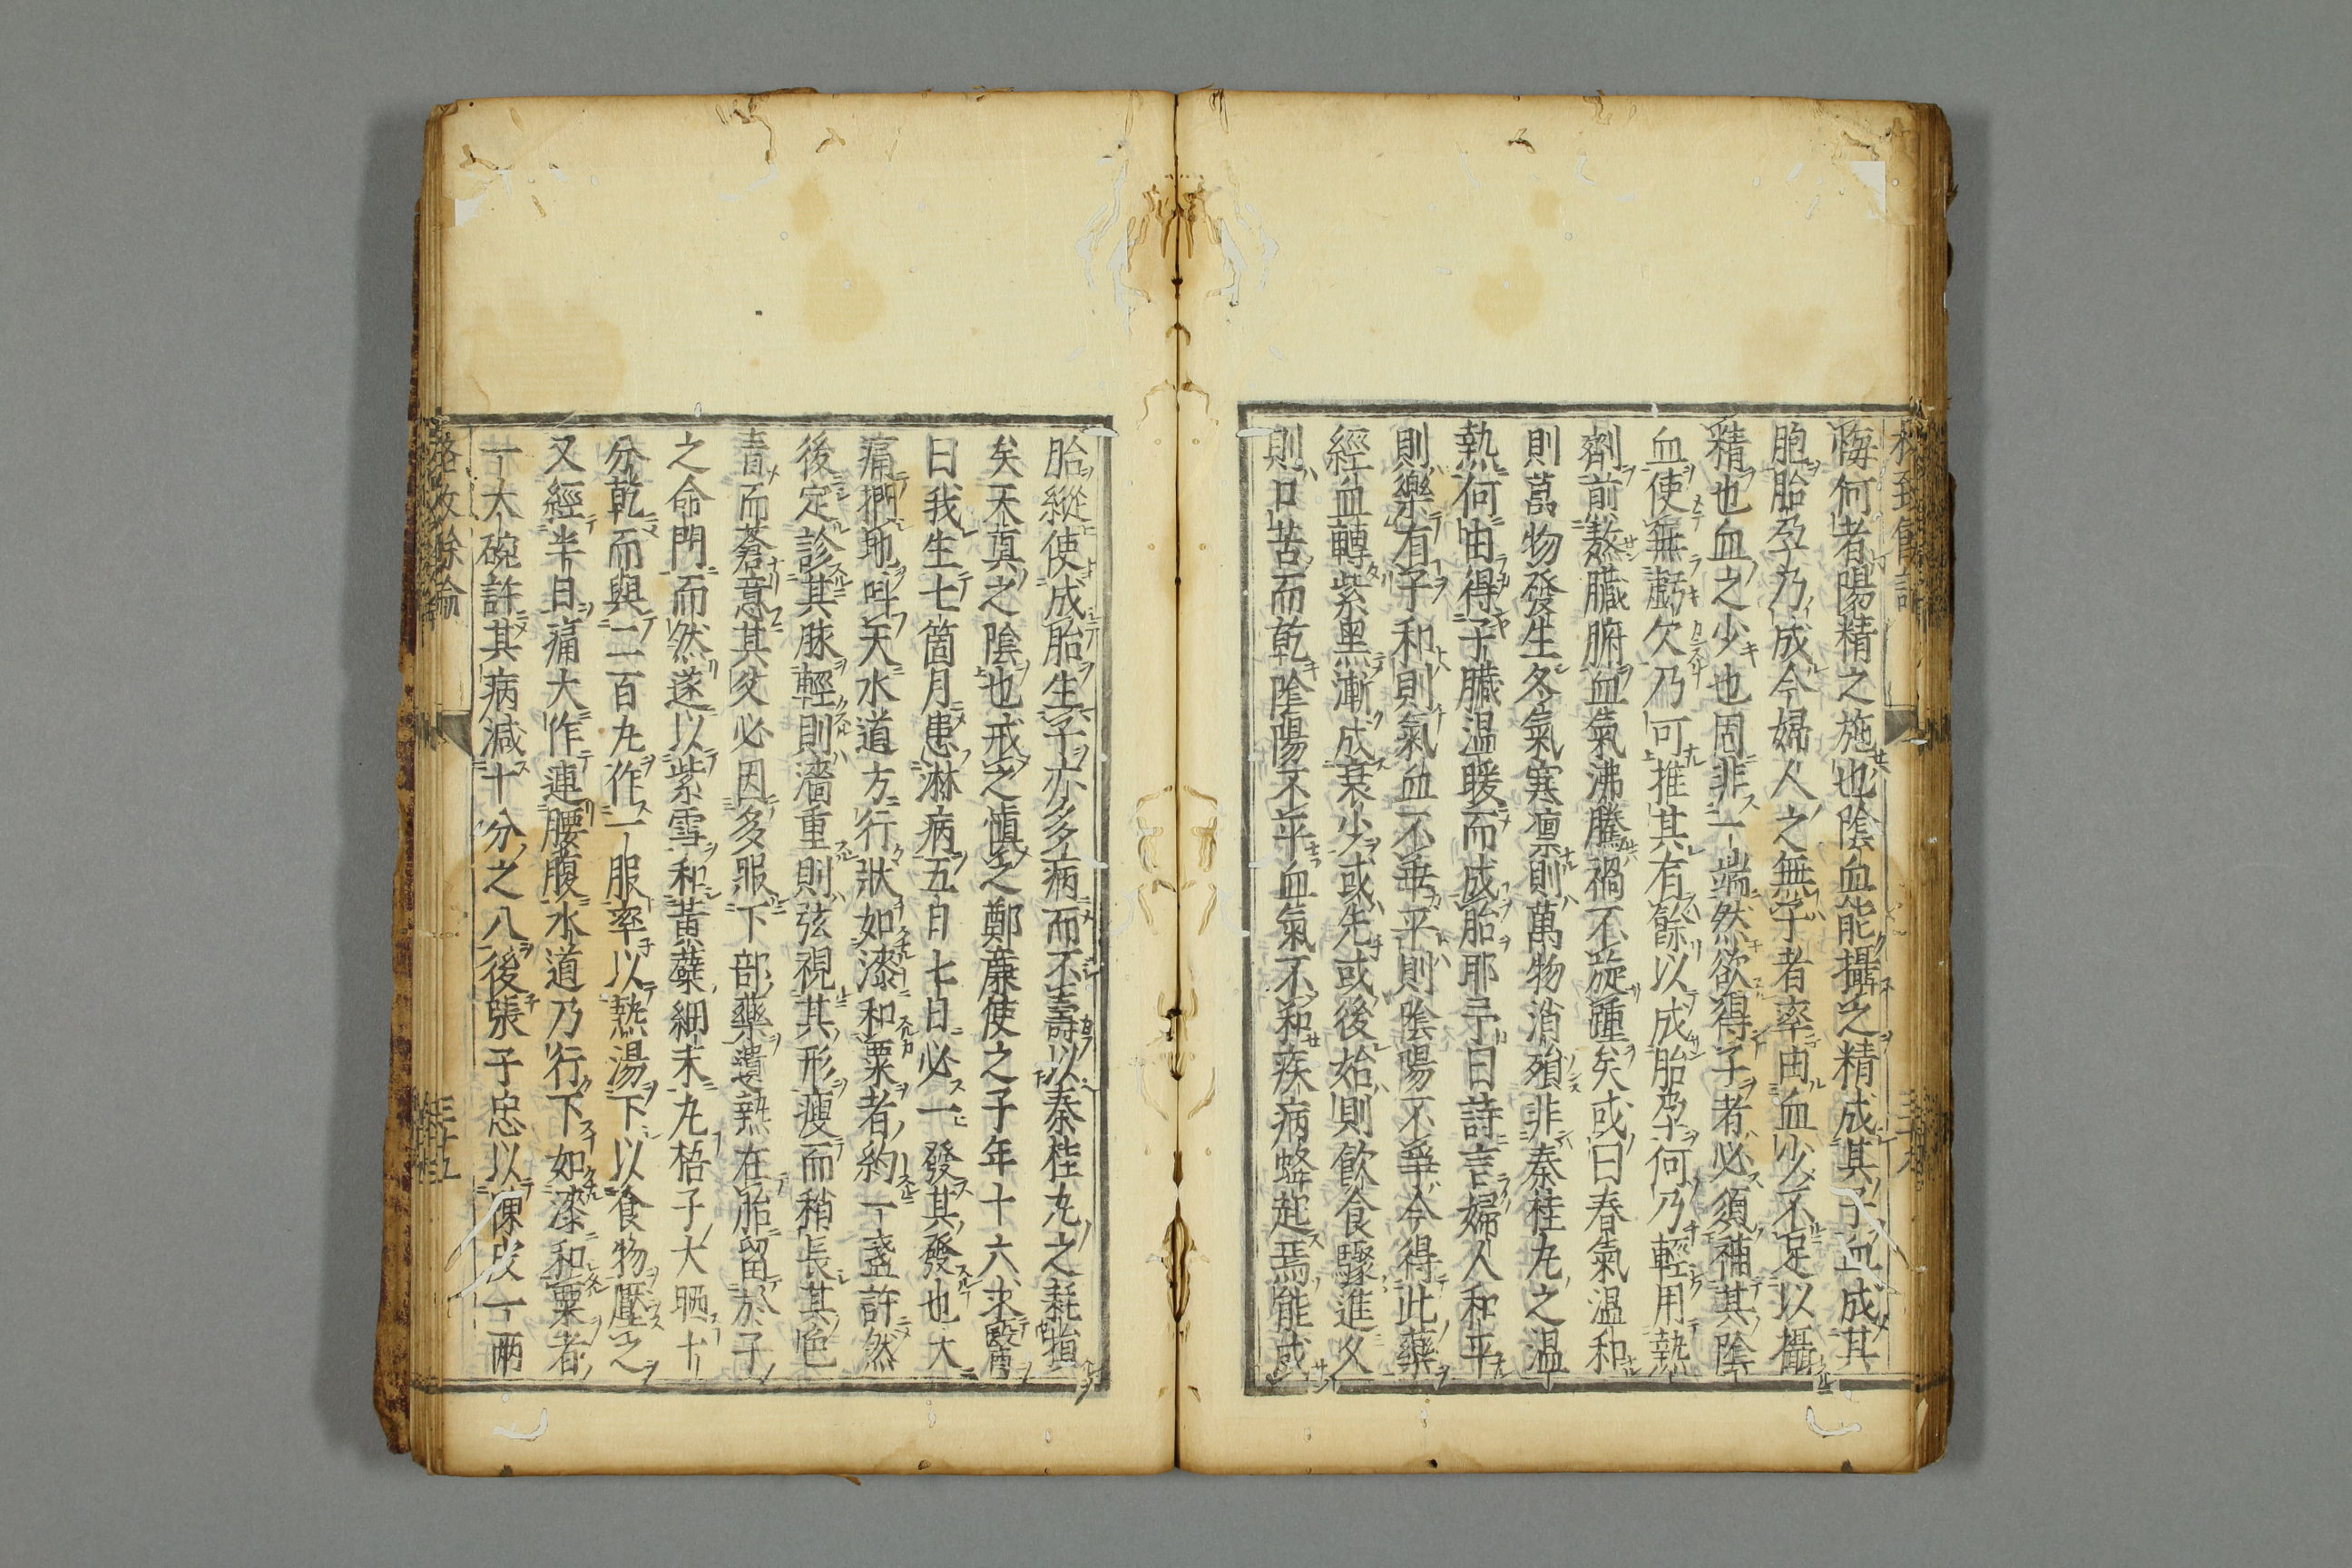 悔何者陽精之施也陰血能攝之精成其子血成其
胞胎孕乃成今婦人之無子者率由血少不足以攝
精也血之少也固非一端然欲得子者必須補其陰
血使無虧欠乃可推其有餘以成胎孕何乃輕用熱
劑前熬臓腑血氣沸騰禍不旋踵矣或曰春氣温和
則萬物發生冬氣寒凛則萬物消殞非秦桂丸之温
熱何由得子臓温暖而成胎耶予曰詩言婦人和平
則樂有子和則氣血不乖平則陰陽不爭今得此藥
經血轉紫黑漸成衰少或先或後始則飲食驟進久
則口苦而乾陰陽不平血氣不和疾病蜂起焉能成
胎縱使成胎生子亦多病而不壽以秦桂丸之耗損
矣天真之陰也戒之慎之鄭廉使之子年十六求醫
曰我生七箇月患淋病五日七日必一發其發也大
痛捫地叫天水道方行狀如漆和粟者約一盞許然
後定診其脉輕則濇重則弦視其形瘦而稍長其色
青而蒼意其父必因多服下部藥遺熱在胎留於子
之命門而然遂以紫雪和黄蘗細末丸梧子大晒十
分乾而與二百丸作一服率以熱湯下以食物壓之
又經半日痛大作連腰腹水道乃行下如漆和粟者
一大碗許其病減十分之八後張子忠以陳皮一兩
格致餘論
三十五